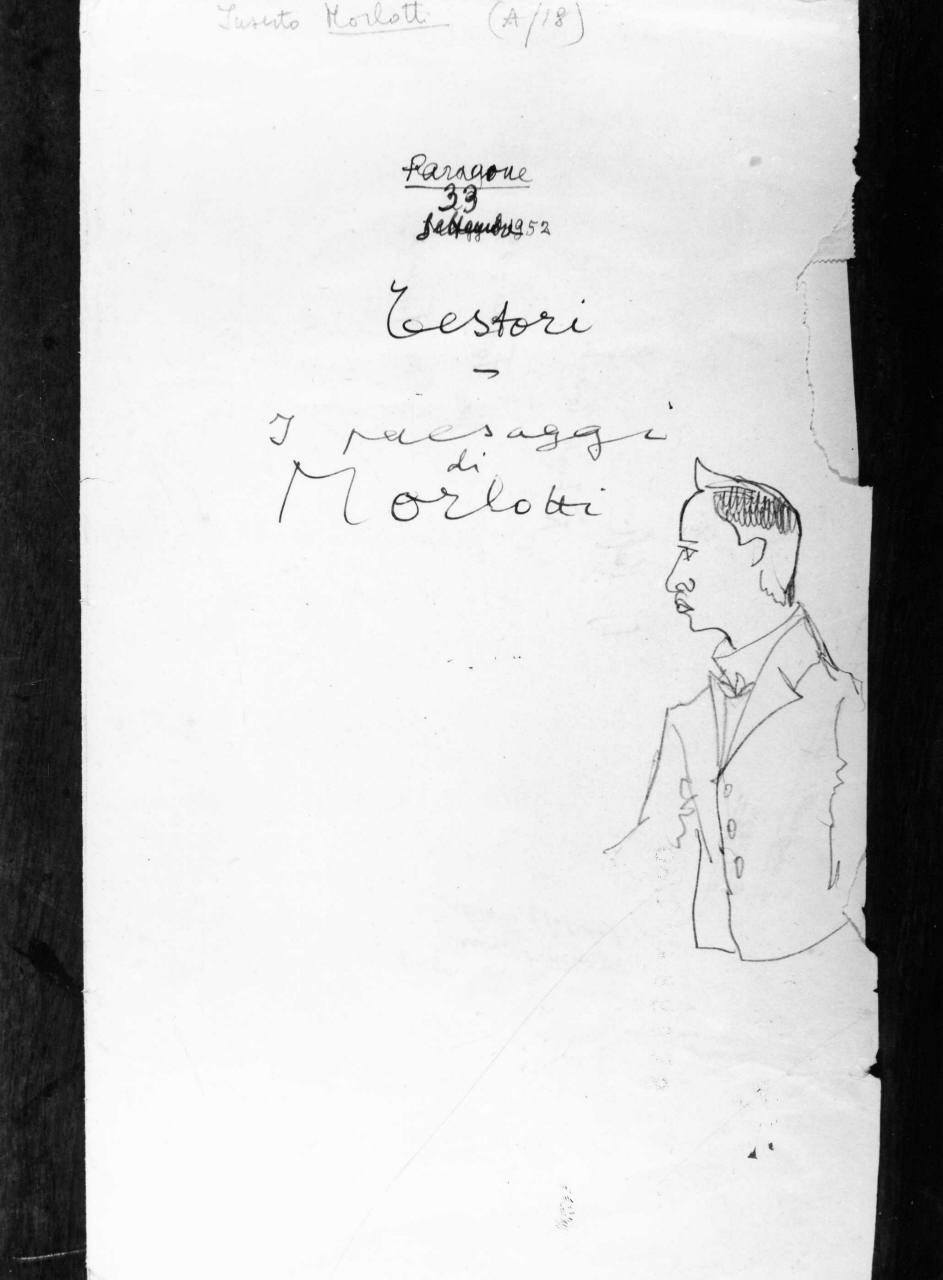 Inserto Morlotti (A/18)
Paragone
33
Settembre 1952
Testori
–
I paesaggi
di
Morlotti